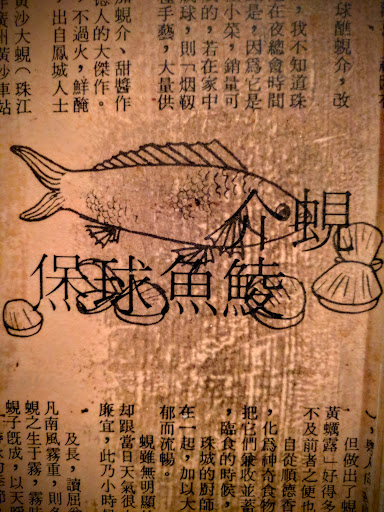 球醮蜆介,改
,我不知道珠
在夜總會時間
是,因爲它是
小菜,銷量可
的,若在家中
球,則「烟韌
種手藝,大量供
加蜆介、甜醬作
德人的大傑作。
,不過火,鮮醃
,出自鳳城人士
黃沙大蜆(珠江
廣州黃沙車站
蜆介
鯪魚球保
但做出了蜆
黃蠣露」好得多
不及前者之便也
自從順德香
,化爲神奇食物
把它們兼收並蓄
,臨食的時候,
珠城的廚師
在一起,加以大
郁而流暢。
蜆雖無明顯
却跟當日天氣很
廉宜,此乃小時
及長,讀屈翁
凡南風霧重,則多
蜆之生于霧,霧
蜆子旣成,以天